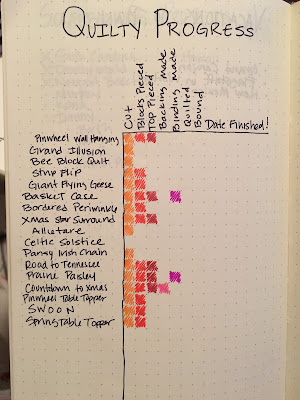 Quilty Progress
Cut
Blocks Pieced
Top Pieced
Backing Made
Binding Made
Quilted
Bound
Date Finished!
Pinwheel Wall Hanging
Grand Illusion
Bee Block Quilt
Strip Flip
Giant Flying Geese
Basket Case
Bordered Periwinkle
Xmas Star Surround
Allietare
Celtic Solstice
Pansy Irish Chain
Road to Tennessee
Prairie Paisley
Countdown to Xmas
Pinwheel Table Topper
SWOON
Spring Table Topper